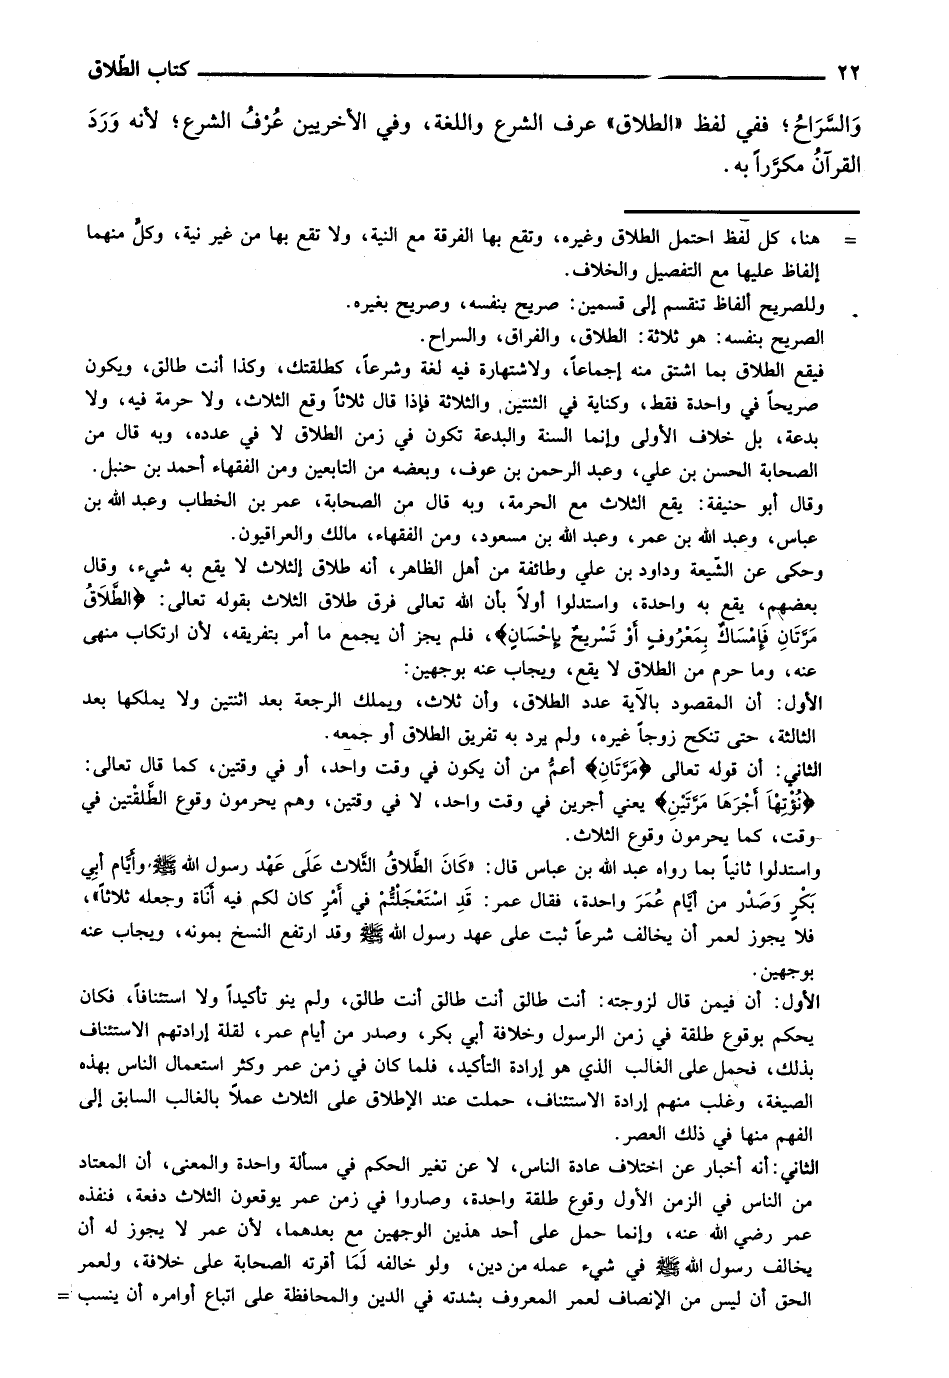 ٢٢ كتاب الطّلاق
وَالسَّرَاحُ؛ ففي لفظ «الطلاق» عرف الشرع واللغة، وفي الأخريين عُرْفُ الشرع؛ لأنه وَرَدَ
القرآنُ مكرَّراً به.
= هنا، كل لفظ احتمل الطلاق وغيره، وتقع بها الفرقة مع النية، ولا تقع بها من غير نية، وكلُّ منهما
إلفاظ عليها مع التفصيل والخلاف.
وللصريح ألفاظ تنقسم إلى قسمين: صريح بنفسه، وصريح بغيره.
الصريح بنفسه: هو ثلاثة: الطلاق، والفراق، والسراح.
فيقع الطلاق بما اشتق منه إجماعاً، ولاشتهارة فيه لغة وشرعاً، كطلقتك، وكذا أنت طالق، ويكون
صريحاً في واحدة فقط، وكناية في الثنتين والثلاثة فإذا قال ثلاثاً وقع الثلاث، ولا حرمة فيه، ولا
بدعة، بل خلاف الأولى وإنما السنة والبدعة تكون في زمن الطلاق لا في عدده، وبه قال من
الصحابة الحسن بن علي، وعبد الرحمن بن عوف، وبعضه من التابعين ومن الفقهاء أحمد بن حنبل.
وقال أبو حنيفة: يقع الثلاث مع الحرمة، وبه قال من الصحابة، عمر بن الخطاب وعبد الله بن
عباس، وعبد الله بن عمر، وعبد الله بن مسعود، ومن الفقهاء، مالك والعراقيون.
وحكى عن الشّيعة وداود بن علي وطائفة من أهل الظاهر، أنه طلاق الثلاث لا يقع به شيء، وقال
بعضهم، يقع به واحدة، واستدلوا أولاً بأن الله تعالى فرق طلاق الثلاث بقوله تعالى: ﴿الطَّلَاقُ
مَرَّتَانِ فَإِمْسَاكٌ بِمَعْرُوفٍ أَوْ تَسْرِيحٌ بِإِحْسَانٍ﴾، فلم يجز أن يجمع ما أمر بتفريقه، لأن ارتكاب منهى
عنه، وما حرم من الطلاق لا يقع، ويجاب عنه بوجهين:
الأول: أن المقصود بالآية عدد الطلاق، وأن ثلاث، ويملك الرجعة بعد اثنتين ولا يملكها بعد
الثالثة، حتى تنكح زوجاً غيره، ولم يرد به تفريق الطلاق أو جمعه.
الثاني: أن قوله تعالى ﴿مَرَّتَانِ﴾ أعمُّ من أن يكون في وقت واحد، أو في وقتين، كما قال تعالى:
﴿نُؤْتِهَا أَجْرَهَا مَرَّتَيْنِ﴾ يعني أجرين في وقت واحد، لا في وقتين، وهم يحرمون وقوع الطَّلقْتين في
وقت، كما يحرمون وقوع الثلاث.
واستدلوا ثانياً بما رواه عبد الله بن عباس قال: «كَانَ الطَّلَاقُ الثَّلاث عَلَى عَهْد رسول الله ﷺ وأَيَّام أبي
بَكْرٍ وَصَدْر من أيَّام عُمَرَ واحدة، فقال عمر: قَدِ اسْتَعْجَلْتُمْ في أمْرٍ كان لكم فيه أَنَاة وجعله ثلاثاً»،
فلا يجوز لعمر أن يخالف شرعاً ثبت على عهد رسول الله ﷺ وقد ارتفع النسخ بمونه، ويجاب عنه
بوجهين.
الأول: أن فيمن قال لزوجته: أنت طالق أنت طالق أنت طالق، ولم ينو تأكيداً ولا استئنافاً، فكان
يحكم بوقوع طلقة في زمن الرسول وخلافة أبي بكر، وصدر من أيام عمر، لقلة إرادتهم الاستئناف
بذلك، فحمل على الغالب الذي هو إرادة التأكيد، فلما كان في زمن عمر وكثر استعمال الناس بهذه
الصيغة، وغلب منهم إرادة الاستئناف، حملت عند الإطلاق على الثلاث عملاً بالغالب السابق إلى
الفهم منها في ذلك العصر.
الثاني: أنه أخبار عن اختلاف عادة الناس، لا عن تغير الحكم في مسألة واحدة والمعنى، أن المعتاد
من الناس في الزمن الأول وقوع طلقة واحدة، وصاروا في زمن عمر يوقعون الثلاث دفعة، فنفذه
عمر رضي الله عنه، وإنما حمل على أحد هذين الوجهين مع بعدهما، لأن عمر لا يجوز له أن
يخالف رسول الله ﷺ في شيء عمله من دين، ولو خالفه لَمَا أقرته الصحابة على خلافة، ولعمر
الحق أن ليس من الإنصاف لعمر المعروف بشدته في الدين والمحافظة على اتباع أوامره أن ينسب =